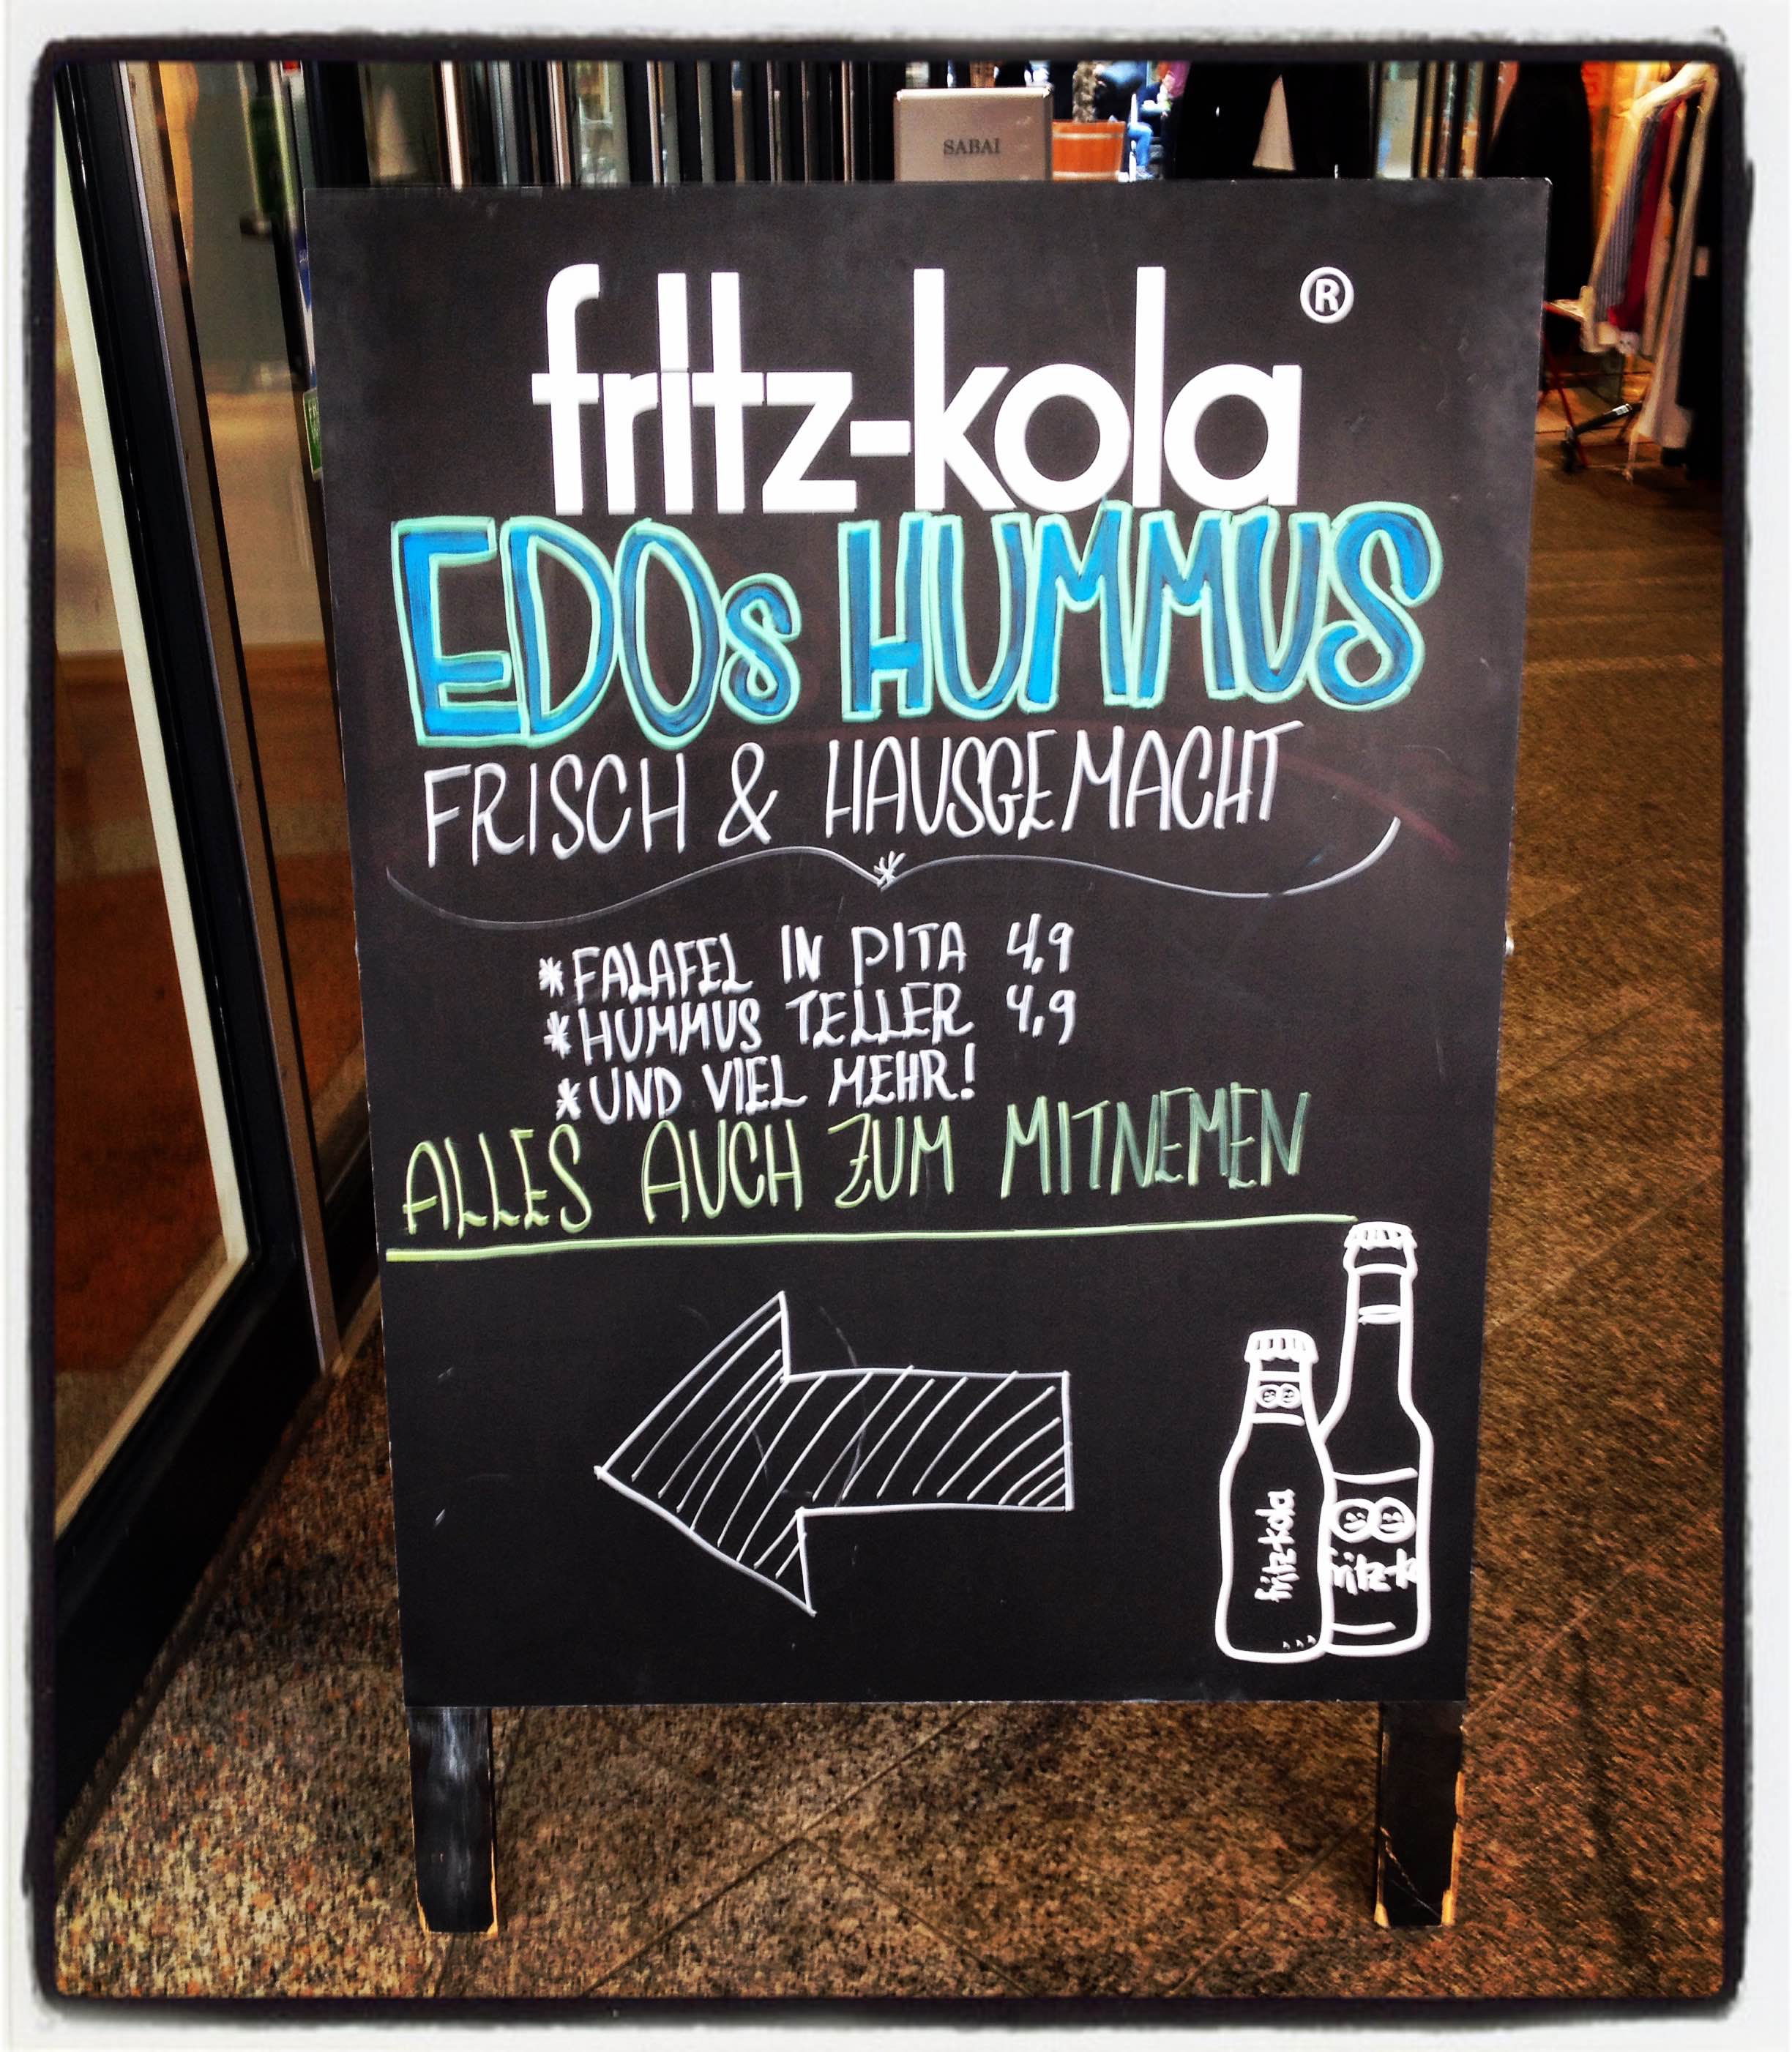 SABAI
fritz-kola ®
EDOs HUMMUS
FRISCH & HAUSGEMACHT
*FALAFEL IN PITA 4,9
*HUMMUS TELLER 4,9
*UND VIEL MEHR!
ALLES AUCH ZUM MITNEMEN
fritz-kola
fritz-k